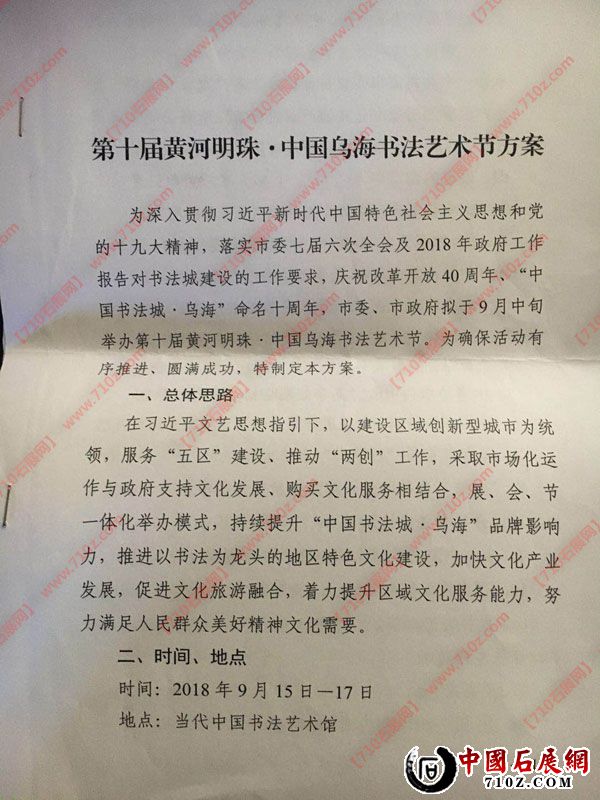 第十届黄河明珠·中国乌海书法艺术节方案
为深入贯彻习近平新时代中国特色社会主义思想和党
的十九大精神，落实市委七届六次全会及2018年政府工作
报告对书法城建设的工作要求，庆祝改革开放40周年、“中
国书法城·乌海”命名十周年，市委、市政府拟于9月中旬
举办第十届黄河明珠·中国乌海书法艺术节。为确保活动有
序推进、圆满成功，特制定本方案。
一、总体思路
在习近平文艺思想指引下，以建设区域创新型城市为统
领，服务“五区”建设、推动“两创”工作，采取市场化运
作与政府支持文化发展、购买文化服务相结合，展、会、节
一体化举办模式，持续提升“中国书法城·乌海”品牌影响
力，推进以书法为龙头的地区特色文化建设，加快文化产业
发展，促进文化旅游融合，着力提升区域文化服务能力，努
力满足人民群众美好精神文化需要。
二、时间、地点
时间：2018年9月15日—17日
地点：当代中国书法艺术馆
中國石展網
710z.COM
【710石展网】www.710z.com